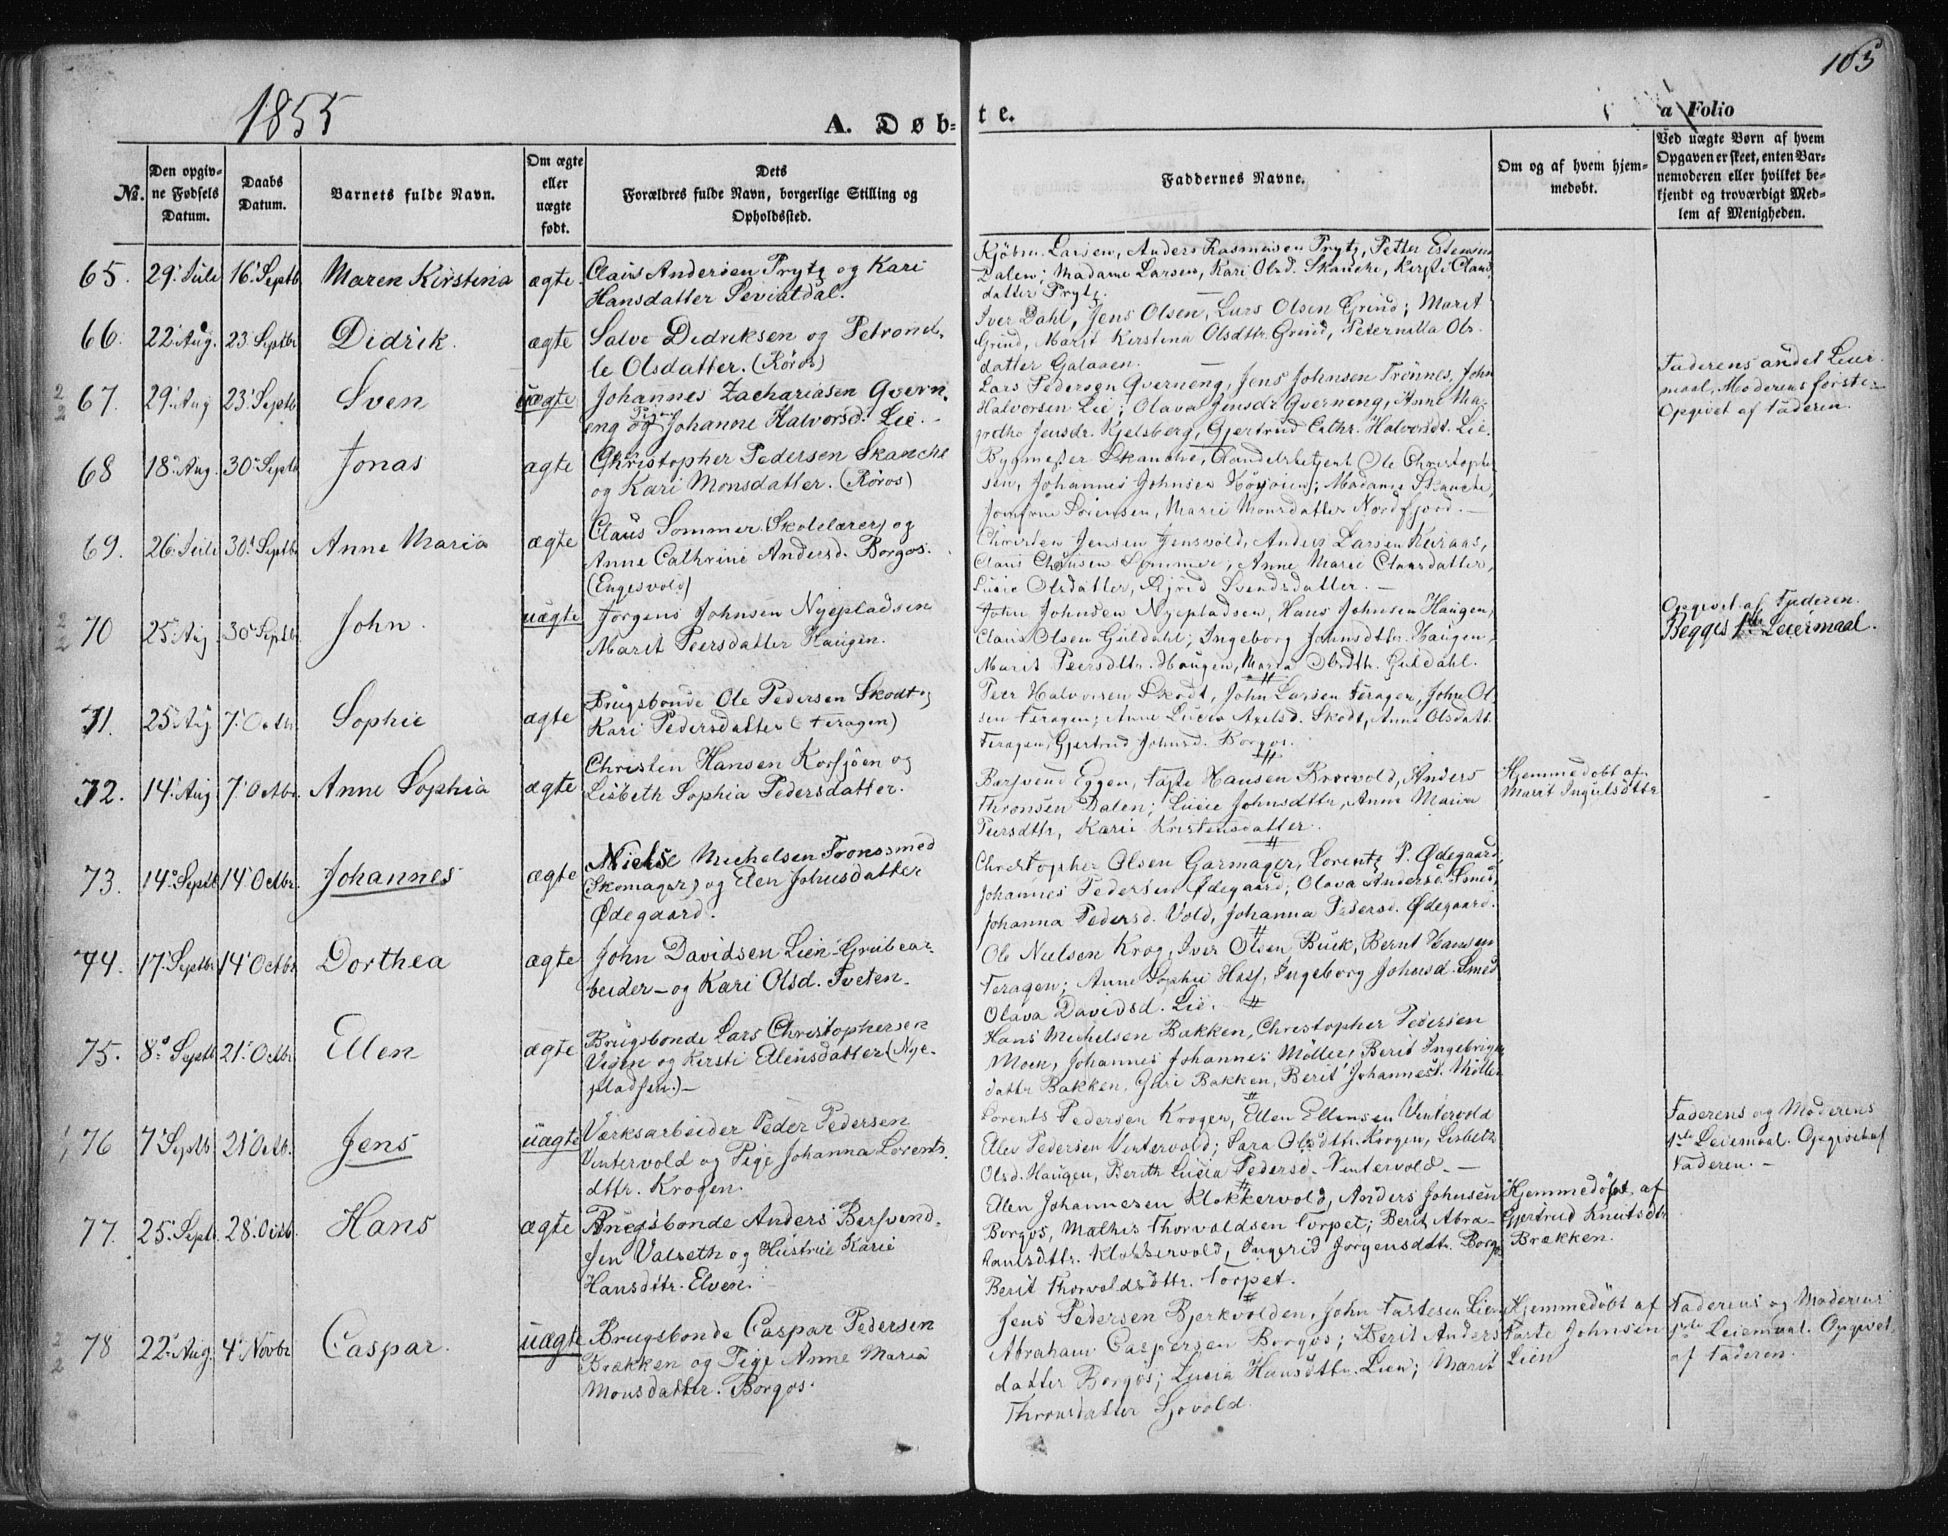 1855
A. Døb-
te.
a Folio
103
№.
Den opgiv-
ne Fødsels
Datum.
Daabs
Datum.
Barnets fulde Navn.
Om ægte
eller
uægte
født.
Dets
Forældres fulde Navn, borgerlige Stilling og
Opholdssted.
Faddernes Navne.
Om og af hvem hjem-
medøbt.
Ved uægte Børn af hvem
Opgaven er skeet, enten Bar-
nemoderen eller hvilket be-
kjendt og troværdigt Med-
lem af Menigheden.
65. 29. Juli 16. Septb. Maren Kirstina ægte.
Claus Andersen Prytz og Kari
Hansdatter
Kjøbm. Larsen, Anders Rasmusen Prytz, Petter Estensen
Dalen; Madame Larsen, Kari Olsd. Skanche, Kirsti Claus
datter Prytz.
66. 22. Aug. 23. Septbr. Didrik. ægte
Salve Dedriksen og Petronel-
le Olsdatter. (Röros)
Iver Dahl, Jens Olsen, Lars Olsen Grind; Marit
Grind, Marit Kerstina Olsdttr. Grind, Peternilla Ols-
datter Galaaen.
67. 29. Aug 23. Septb. Sven uægte
Johannes Zachariasen Qvern-
eng og Pige Johanne Halvorsd. Lie.
Lars Pedersen Qverneng, Jens Johnsen Trönnes, John
Halvorsen Lie; Olava Jensdr. Qverneng, Anne Ma-
grethe Jensdr. Kjelsberg, Gjertrud Cathr. Halvorsdt. Lie.
Faderens andet Leier-
maal, Moderens første.
Opgivet af Faderen.
68 18. Aug. 30. Septb. Jonas ægte
Christopher Pedersen Skanche
og Kari Monsdatter. (Röros)
Bygmester Skanche, Handelsbetjent Ole Christophe
sen, Johannes Johnsen; Madame Skanche,
Jomfrue Sörensen, Marie Monsdatter Nordfjord.
69. 26. Juli 30. Septbr. Anne Maria ægte
Claus Sommer (Skolelærer) og
Anne Cathrine Andersd. Borgos.
(Engesvold)
Christen Jensen Jensvold, Anders Larsen Kuraas,
Claus Clausen Sommer, Anne Marie Clausdatter,
Lucie Olsdatter, Sjgrid Svendsdatter.
70 25. Aug. 30. Septb. John. uægte
Jörgens Johnsen Nyepladsen
Marit Peersdatter Haugen.
John Johnsen Nyepladsen, Hans Johnsen Haugen,
Claus Olsen Guldahl; Ingeborg Johnsdttr. Haugen,
Marit Peersdttr. Haugen, Maria Olsdttr. Guldahl.
Opgivet af Faderen.
Begges 1ste Leiermaal.
71. 25. Aug 7. Octbr. Sophie ægte
Brugsbonde Ole Pedersen Skodt og
Kari Pedersdatter (Feragen)
Peer Halvorsen Skodt, John Larsen Feragen, John Ol-
sen Feragen; Anne Lucia Axelsd. Skodt, Anne Olsdatt.
Feragen, Gjertrud Johnsd. Borgos.
72. 14. Aug 7. Octbr. Anne Sophia ægte
Christen Hansen Korssjöen og
Lisbeth Sophia Pedersdatter.
Barsvend Eggen, Tajte Hansen Brorvold, Anders
Thronsen Dalen; Lucie Johnsdttr, Anne Maria
Peersdttr, Karie Kristensdatter.
Hjemmedøbt af
Marit Ingulsdttr.
73. 14. Septb. 14. Octbr. Johannes ægte
Niels Michelsen Tronssmed
(Skomager) og Elen Johnsdatter
Ødegaard.
Christopher Olsen Garmager, Lorentz P. Ødegaard,
Johannes Pedersen Ødegaard; Olava Andersd. Smed,
Johanna Pedersd. Vold, Johanna Pedersd. Ødegaard.
74. 17. Septbr. 14. Octbr. Dorthea ægte
John Davidsen Lien-Grubear-
beider - og Kari Olsd. Tveten.
Ole Nielsen Krog, Iver Olsen Buck, Bernt Hansen
Feragen; Anne Sophie Hass, Ingeborg Johnsd. Smed
Olava Davidsd. Lie.
75. 8. Septb. 21. Octbr. Ellen ægte
Brugsbonde Lars Christophersen
Vigen og Kirsti Elensdatter (Nye-
pladsen.)
Hans Michelsen Bakken, Christopher Pedersen
Moen, Johannes Johannes Möller; Berit Ingebrigts
dattr Bakken, Guri Bakken, Berit Johannesd. Möller
76 7. Septb. 21. Octb. Jens uægte
Værksarbeider Peder Pedersen
Vintervold og Pige Johanna Lorents-
dttr. Krogen.
Lorents Pedersen Kroger, Ellen Ellensen Vintervold
Elev Pedersen Vintervold; Sara Olsdttr. Krogen, Lisbeth
Olsd. Haugen, Berith Lucia Pedersd. Vintervold.
Faderens og Moderens
1ste Leiermaal. Opgivet af
Faderen.
77. 25. Septb. 28. Octb. Hans ægte
Brugsbonde Anders Bersvend-
sen Valseth og Hustrue Karie
Hansdttr. Elven.
Elen Johannesen Klokkervold, Anders Johnsen
Borgos, Mathis Thorvaldsen Torpet; Berit Abra-
hamsdttr. Klokkervold, Ingerid Jörgensdttr. Borgo
Berit Thorvoldsdttr. Torpet.
Hjemmedøbt af
Gjertrud Knutsdtr.
Brækken.
78 22. Aug. 4. Novbr. Caspar. uægte
Brugsbonde Caspar Pedersen
Brækken og Pige Anne Maria
Monsdatter. Borgos.
Jens Pedersen Bjerkvolden, John Tartesen Lien
Abraham Caspersen Borgos; Berit Anders
datter Borgos; Lucia Hansdttr. Lien; Marit
Thronsdatter Sjovold.
Hjemmedøbt af
Tarte Johnsen
Lien
Faderens og Moderens
1ste Leiermaal. Opgivet
af Faderen.